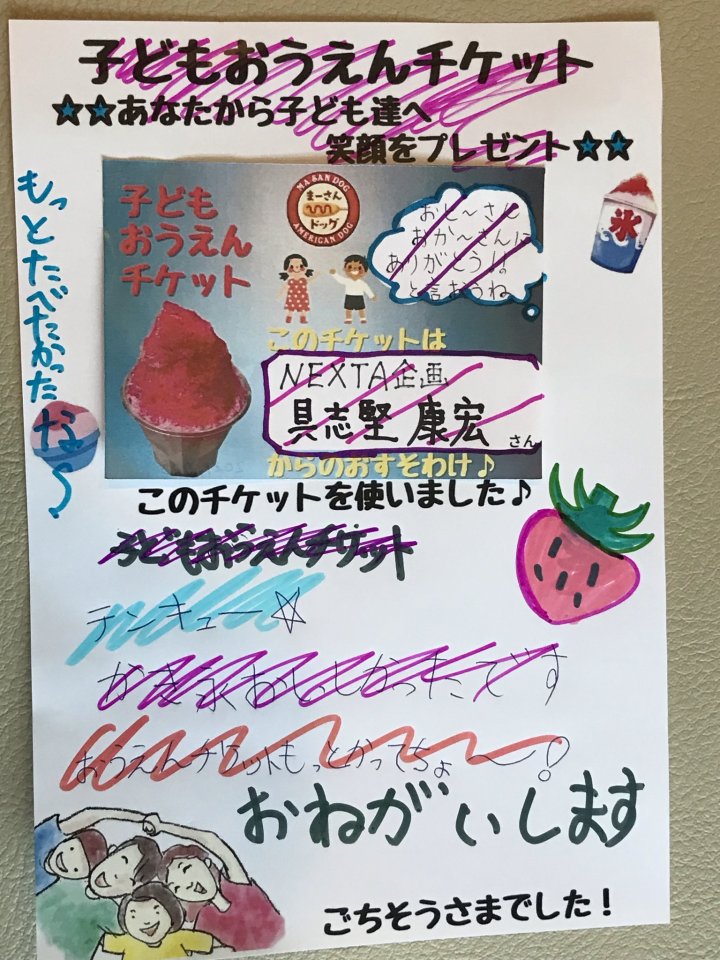 子どもおうえんチケット
★★あなたから子ども達へ
笑顔をプレゼント★★
もっとたべたかったな〜
氷
子ども
おうえん
チケット
MA SAN DOG
まーさん
ドッグ
AMERICAN DOG
おと〜さんと
おか〜さんに
ありがとう!!
と言おうね
このチケットは
NEXTA企画
具志堅 康宏 さん
からのおすそわけ♪
このチケットを使いました♪
子どもおうえんチケット
テンキュー☆
かき氷おいしかったです
おうえんチケットもっとかってちょ〜!
おねがいします
ごちそうさまでした!